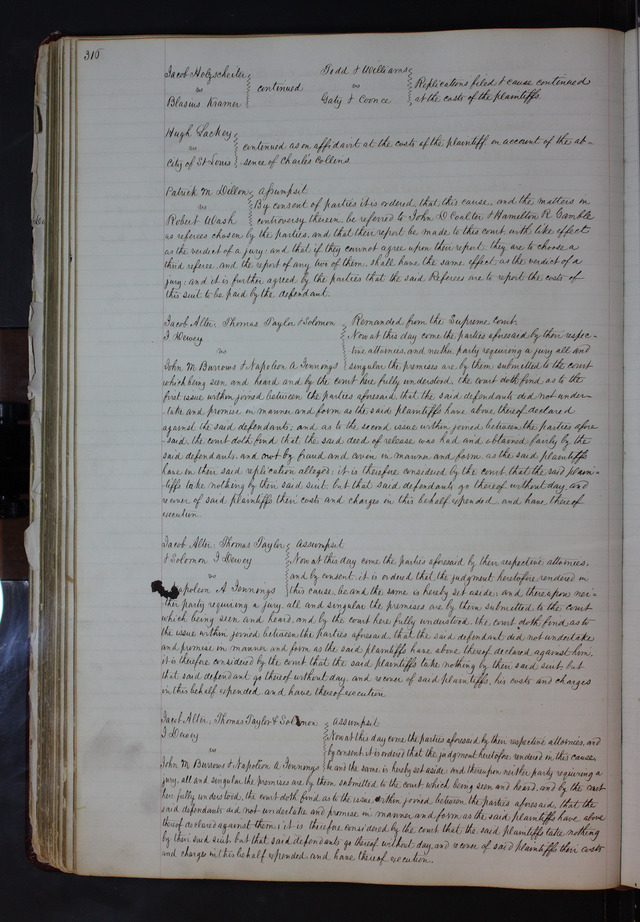 310
Jacob Holzscheiter
vs
Blasius Kramer
continued
Todd & Williams
vs
Gaty & Coonce
Replications filed & cause continued
at the costs of the plaintiffs.
Hugh Lackey
vs
City of St Louis
continued as on affidavit at the costs of the plaintiff on account of the ab-
sence of Charles Collens
Patrick M Dillon
vs
Robert Wash
Assumpsit
By consent of parties it is ordered that this cause, and the matters in
controversy therein, be referred to John D Coalter & Hamilton R Gamble
as referees chosen by the parties, and that their report be made to this court, with like effect
as the verdict of a jury: and that if they cannot agree upon their report, they are to choose a
third referee, and the report of any two of them, shall have the same effect as the verdict of a
jury: and it is further agreed by the parties that the said Referees are to report the costs of
this suit to be paid by the defendant.
Jacob Alter, Thomas Taylor & Solomon
J Dewey
vs
John M Burrows & Napoleon A Jennongs
Remanded from the Supreme Court.
Now at this day come the parties aforesaid by their respec-
tive attornies, and neither party requiring a jury all and
singular the premises are by them submitted to the court
which being seen and heard and by the court here fully understood, the court doth find, as to the
first issue within joined between the parties aforesaid, that the said defendants did not under-
take and promise in manner and form as the said plaintiffs have above thereof declared
against the said defendants; and as to the second issue within joined between the parties afore-
said, the court doth find that the said deed of release was had and obtained fairly by the
said defendants, and not by fraud and covin in manner and form as the said plaintiffs
have in their said replication alleged: it is therefore considered by the court that the said plain-
tiffs take nothing by their said suit but that said defendants go thereof without day, and
recover of said plaintiffs their costs and charges in this behalf expended and have thereof
execution.
Jacob Alter, Thomas Taylor
& Solomon J Dewey
vs
Napoleon A Jennongs
Assumpsit
Now at this day come the parties aforesaid by their respective attornies,
and by consent it is ordered that the judgment heretofore rendered in
this cause, be and the same is hereby set aside: and thereupon nei-
ther party requiring a jury, all and singular the premises are by them submitted to the court
which being seen and heard, and by the court here fully understood, the court doth find, as to
the issue within joined between the parties aforesaid, that the said defendant did not undertake
and promise in manner and form as the said plaintiffs have above thereof declared against him;
it is therefore considered by the court that the said plaintiffs take nothing by their said suit, but
that said defendant go thereof without day, and recover of said plaintiffs, his costs and charges
in this behalf expended and have thereof execution
Jacob Alter, Thomas Taylor & Solomon
J Dewey
vs
John M Burrows & Napoleon A Jennongs
Assumpsit
Now at this day come the parties aforesaid by their respective attornies, and
by consent it is ordered that the judgment heretofore rendered in this cause,
be and the same is hereby set aside and thereupon neither party requiring a
jury, all and singular the premises are by them submitted to the court which being seen and heard, and by the court
here fully understood, the court doth find, as to the issue within joined between the parties aforesaid, that the
said defendants did not undertake and promise in manner and form as the said plaintiffs have above
thereof declared against them: it is therefore considered by the court that the said plaintiffs take nothing
by their said suit, but that said defendants go thereof without day, and recover of said plaintiffs their costs
and charges in this behalf expended, and have thereof execution.